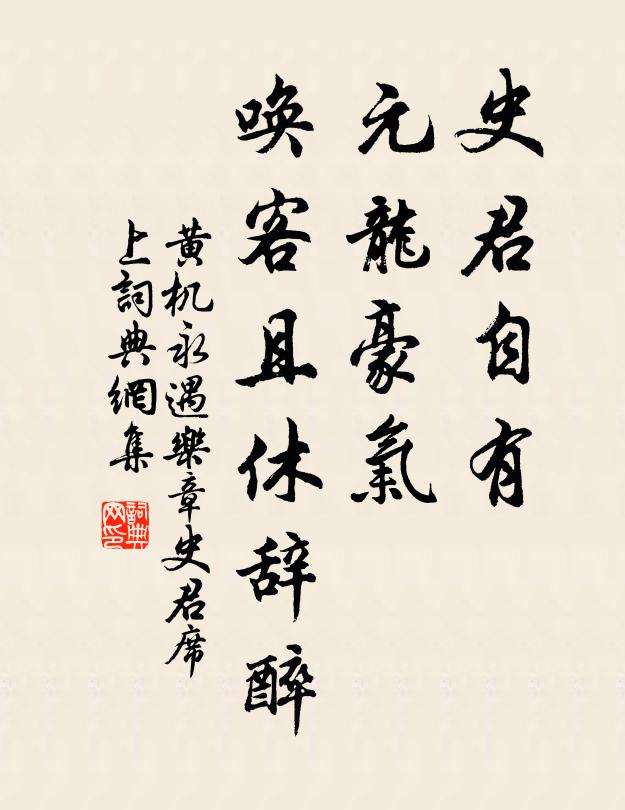 史君自有
元龍豪氣
喚客且休辞醉
黄机永遇樂章史君席
上詞典網集
詞典
网印